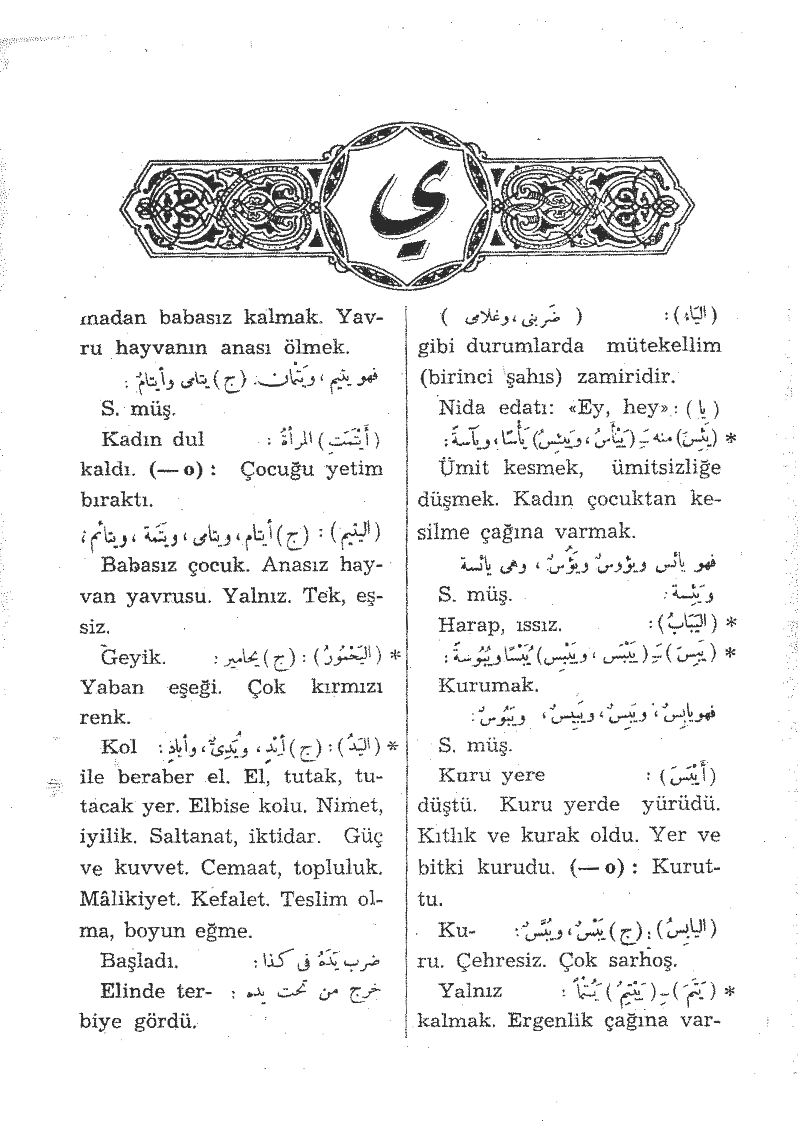 ي
(الْيَاءُ): ( ضَرَبَنِي، وَغُلَامِي )
gibi durumlarda mütekellim
(birinci şahıs) zamiridir.
(يَا): Nida edatı: «Ey, hey»
* (يَئِسَ) منه َِ (يَيْأَسُ، وَيَيْئِسُ) يَأْسًا، وَيَآسَةً:
Ümit kesmek, ümitsizliğe
düşmek. Kadın çocuktan ke-
silme çağına varmak.
فهو يَائِس وَيَؤُوسٌ وَيَؤُسٌ، وهي يَائِسَة
وَيَئِسَة: S. müş.
* (الْيَبَابُ): Harap, ıssız.
* (يَبِسَ) َِ (يَيْبَسُ، وَيَيْبِسُ) يُبْسًا وَيُبُوسَةً:
Kurumak.
فهو يَابِسٌ، وَيَبِسٌ، وَيَبِيسٌ، وَيَبُوسٌ:
S. müş.
(أَيْبَسَ): Kuru yere
düştü. Kuru yerde yürüdü.
Kıtlık ve kurak oldu. Yer ve
bitki kurudu. (— o) : Kurut-
tu.
(الْيَابِسُ): (ج) يَبْسٌ، وَيُبَّسٌ: Ku-
ru. Çehresiz. Çok sarhoş.
* (يَتَمَ) ِ (يَيْتِمُ) يُتْمًا: Yalnız
kalmak. Ergenlik çağına var-
madan babasız kalmak. Yav-
ru hayvanın anası ölmek.
فهو يتيم، وَيَتْمَان. (ج) يتامى وأيتامٌ:
S. müş.
(أَيْتَمَتِ) المرأةُ: Kadın dul
kaldı. (— o) : Çocuğu yetim
bıraktı.
(اليتيم): (ج) أيتام، ويتامى، ويَتَمة، ويتائم:
Babasız çocuk. Anasız hay-
van yavrusu. Yalnız. Tek, eş-
siz.
* (الْيَحْمُورُ): (ج) يحامير: Geyik.
Yaban eşeği. Çok kırmızı
renk.
* (الْيَدُ): (ج) أَيْدٍ، وَيُدِيٌّ، وأيادٍ: Kol
ile beraber el. El, tutak, tu-
tacak yer. Elbise kolu. Nimet,
iyilik. Saltanat, iktidar. Güç
ve kuvvet. Cemaat, topluluk.
Mâlikiyet. Kefalet. Teslim ol-
ma, boyun eğme.
ضرب يَدَهُ في كذا: Başladı.
خرج من تحت يده: Elinde ter-
biye gördü.